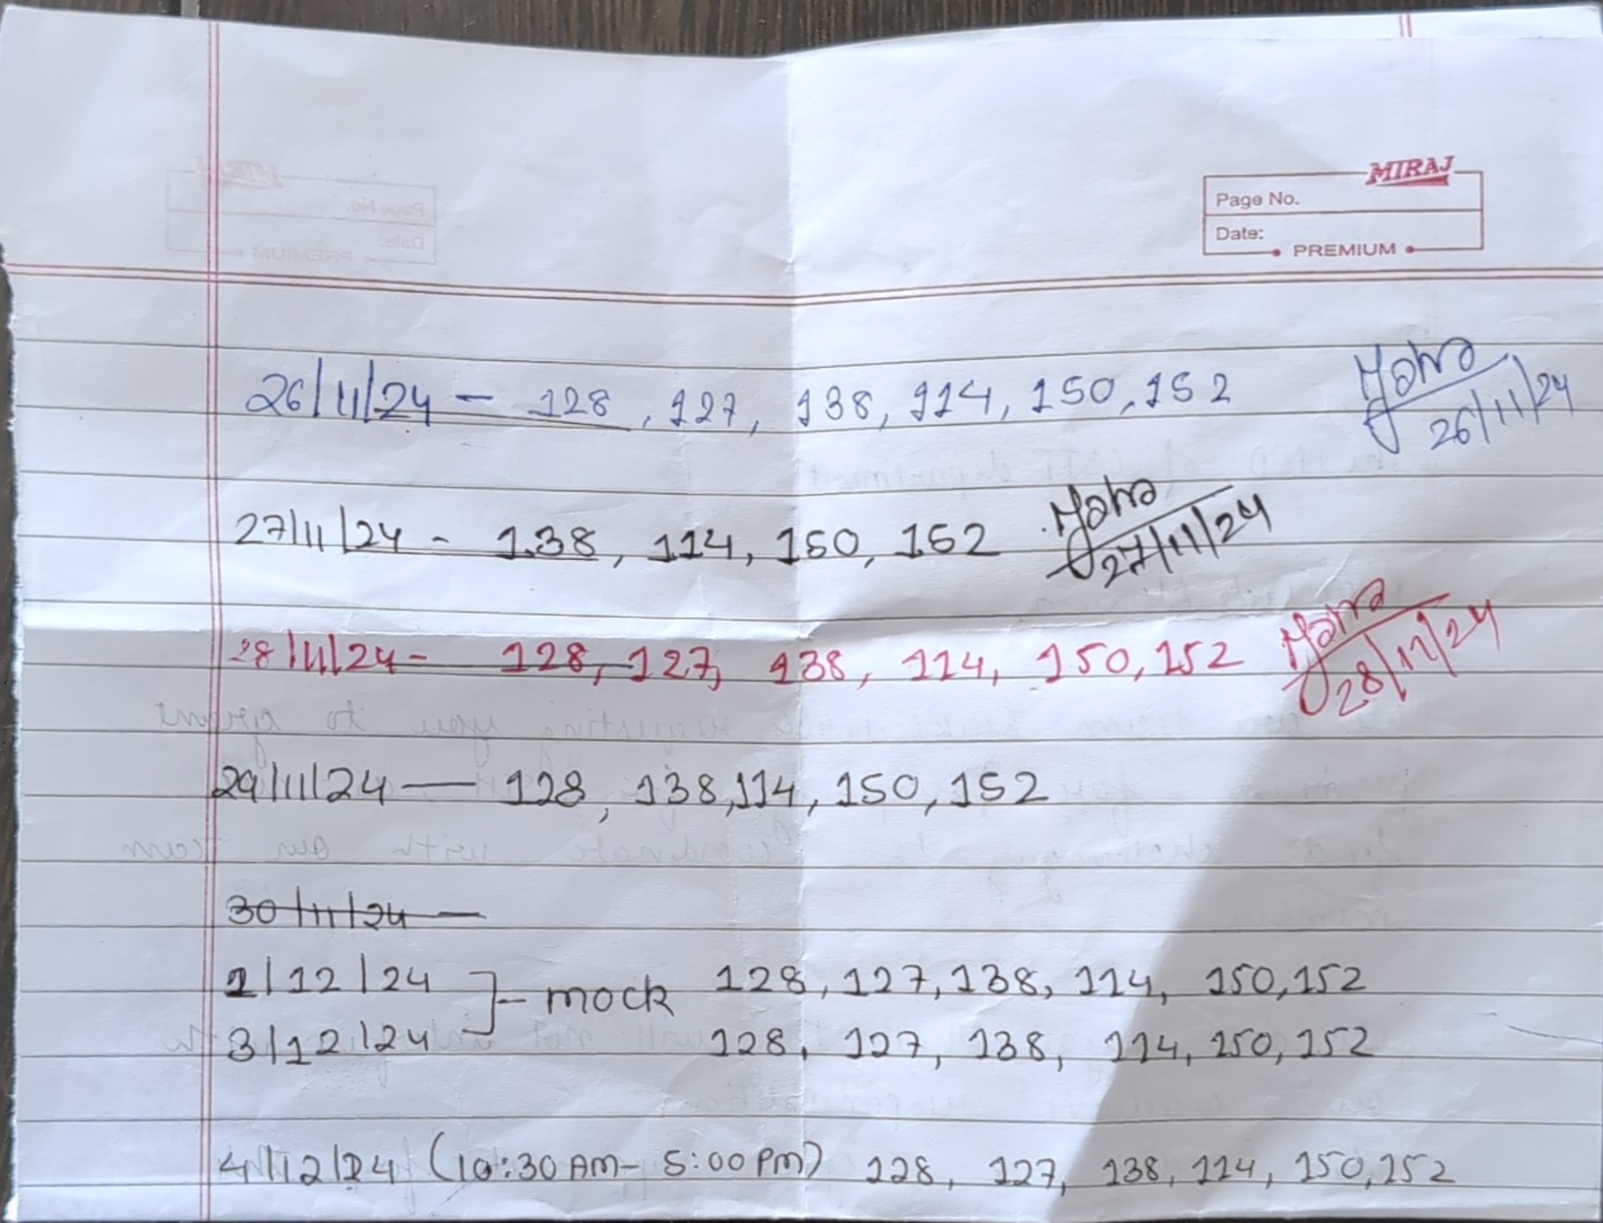 MIRAJ
Page No.
Date:
PREMIUM
26/11/24 - 128, 127, 138, 114, 150, 152
26/11/24
27/11/24 - 138, 114, 150, 152
27/11/24
28/11/24 - 128, 127, 138, 114, 150, 152
28/11/24
29/11/24 — 128, 138, 114, 150, 152
30/11/24 —
2/12/24 ]- mock 128, 127, 138, 114, 150, 152
3/12/24 128, 127, 138, 114, 150, 152
4/12/24 (10:30 AM - 5:00 PM) 128, 127, 138, 114, 150, 152